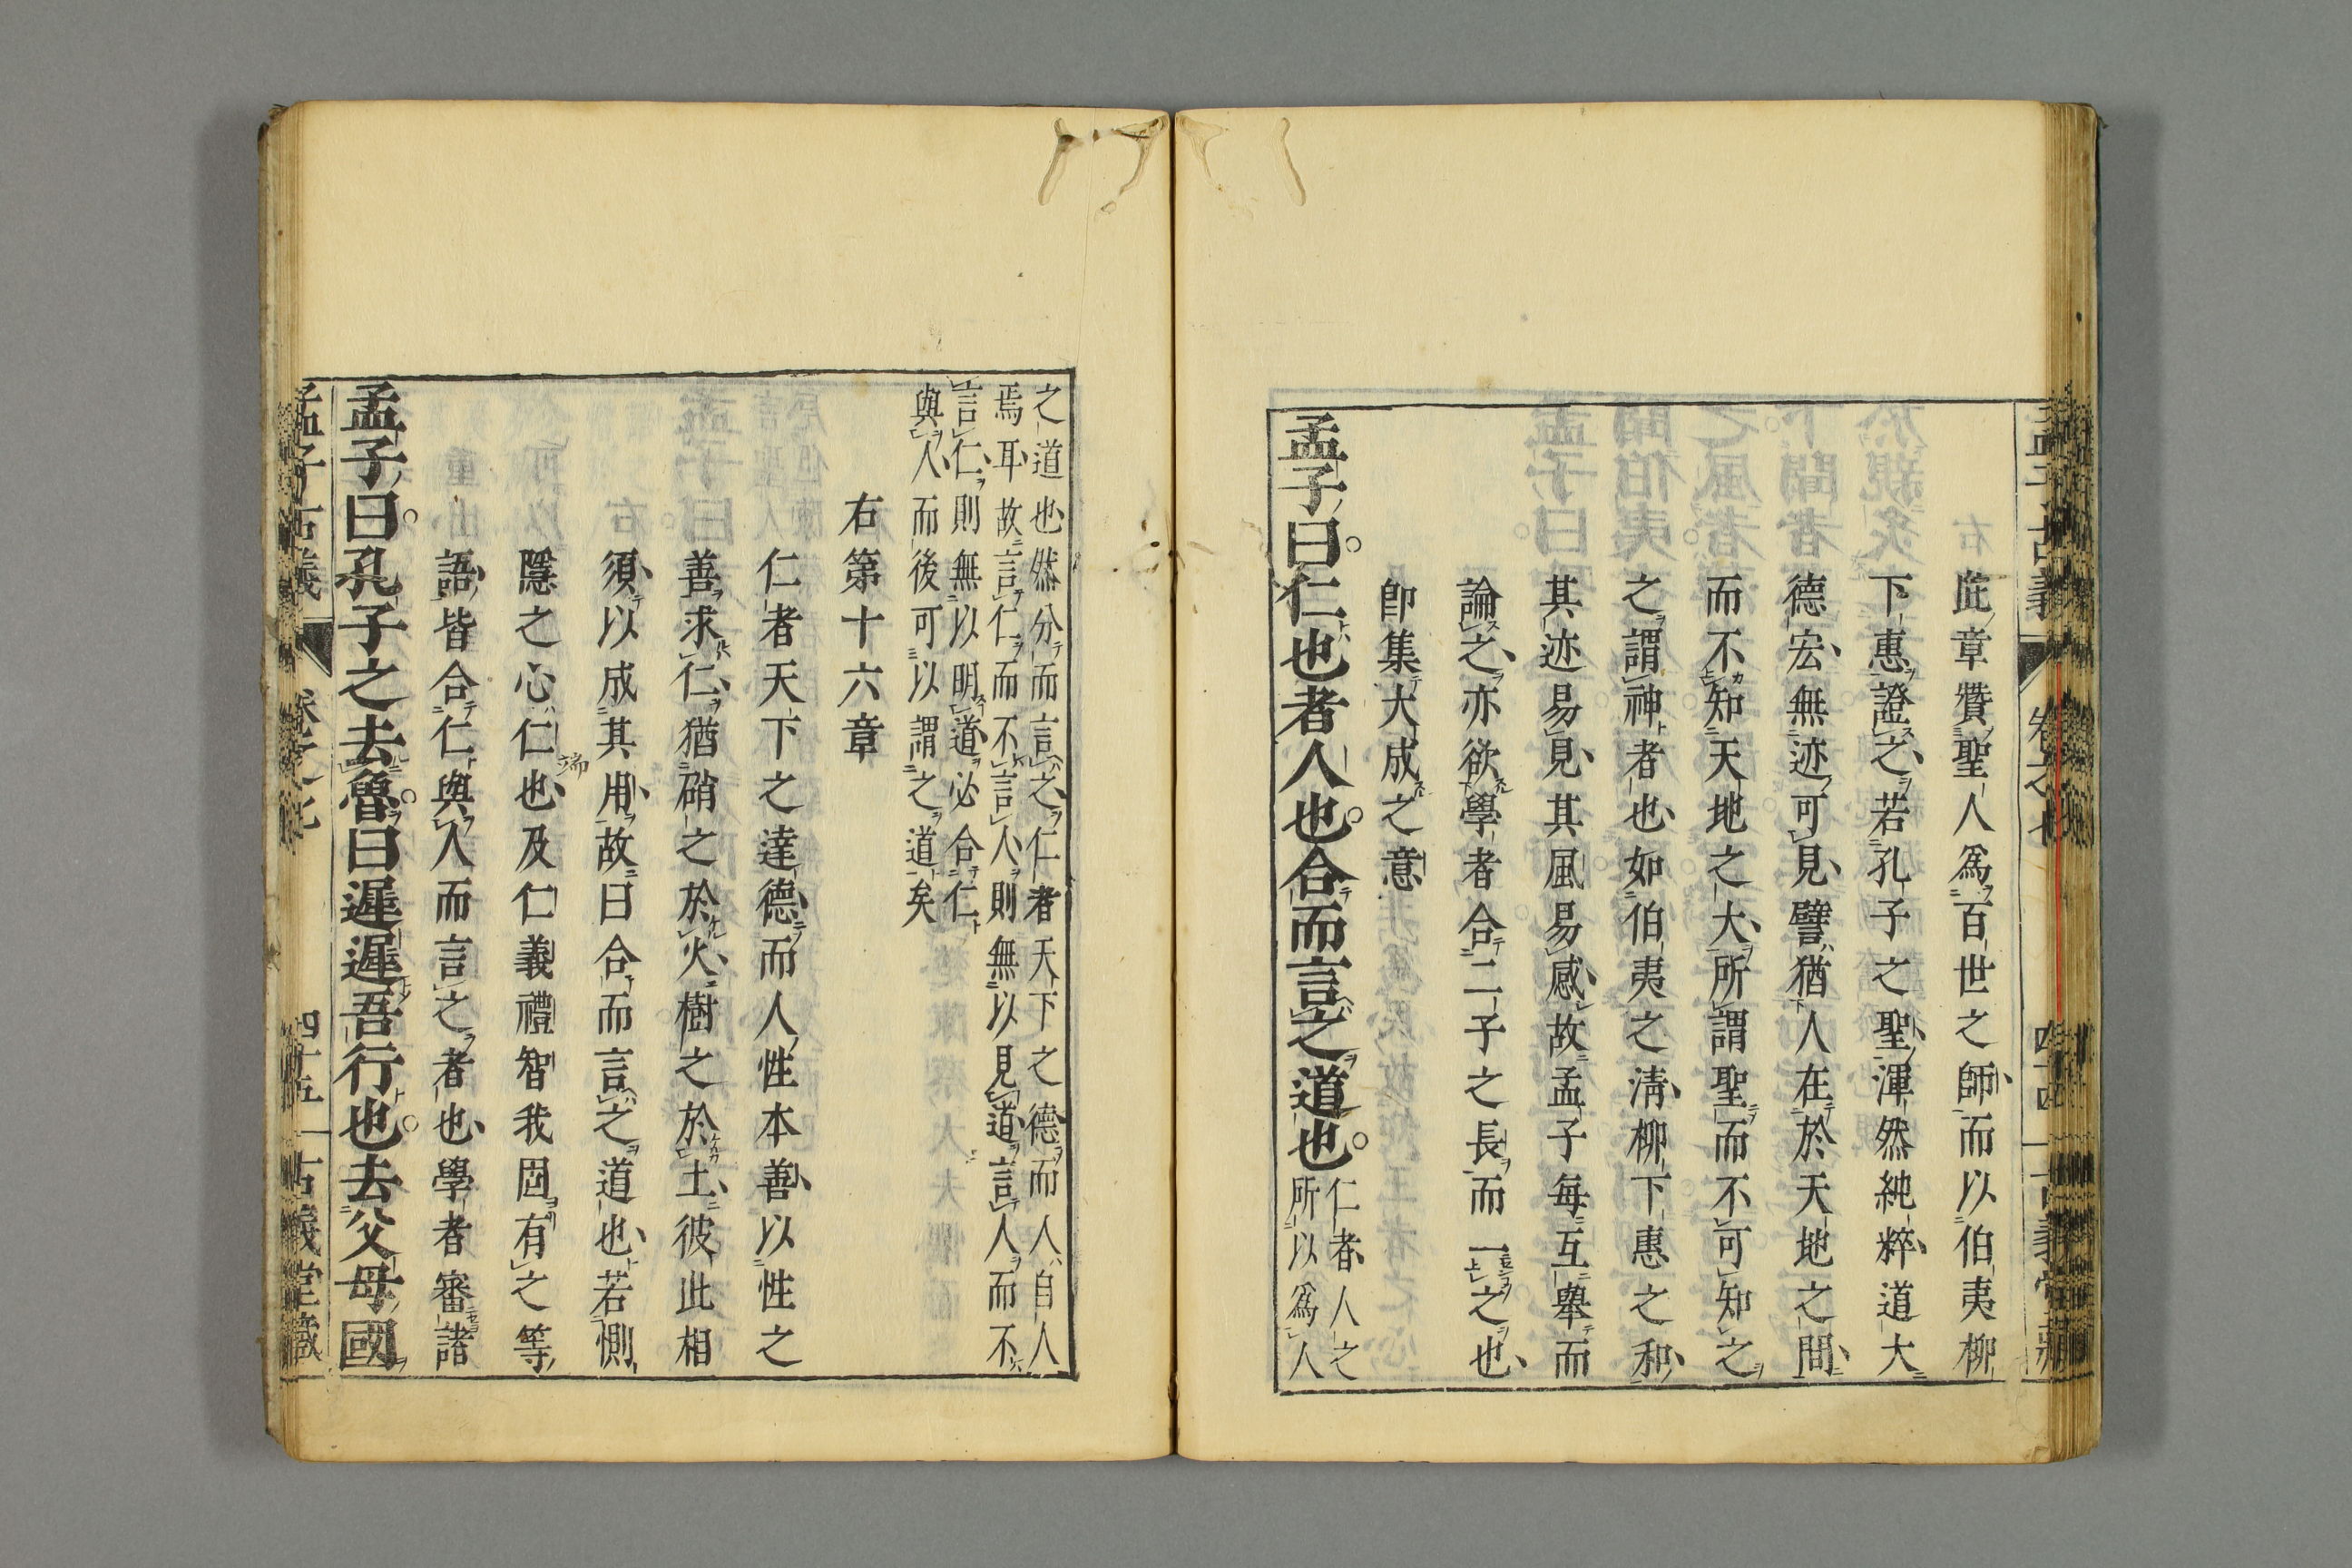 此章贊聖人爲百世之師而以伯夷柳
下惠證之若孔子之聖渾然純粹道大
德宏無迹可見譬猶人在於天地之間
而不知天地之大所謂聖而不可知之
之謂神者也如伯夷之淸柳下惠之和
其迹易見其風易感故孟子每互舉而
論之亦欲學者合二子之長而一之也
卽集大成之意
孟子曰仁也者人也合而言之道也
仁者人之
所以爲人
之道也然分而言之仁者天下之德而人自人
焉耳故言仁而不言人則無以見道言人而不
言仁則無以明道必合仁
與人而後可以謂之道矣
右第十六章
仁者天下之達德而人性本善以性之
善求仁猶硝之於火樹之於土彼此相
須以成其用故曰合而言之道也若惻
隱之心仁也及仁義禮智我固有之等
端
語皆合仁與人而言之者也學者審諸
孟子曰孔子之去魯曰遲遲吾行也去父母國
孟子古義 卷之七 四十五 古義堂藏